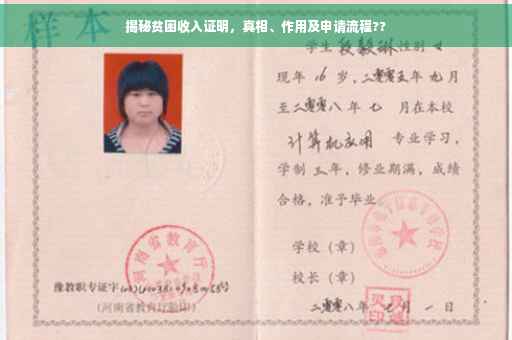 揭秘贫困收入证明，真相、作用及申请流程??
样本
学生段毅琳性别女
现年16岁，二零零五年九月
至二零零八年七月在本校
计算机应用 专业学习，
学制三年，修业期满，成绩
合格，准予毕业
学校（章）
河南省教育厅
豫教职专证字
校长（章）
(河南省教育厅验印)
二零零八年 月一日